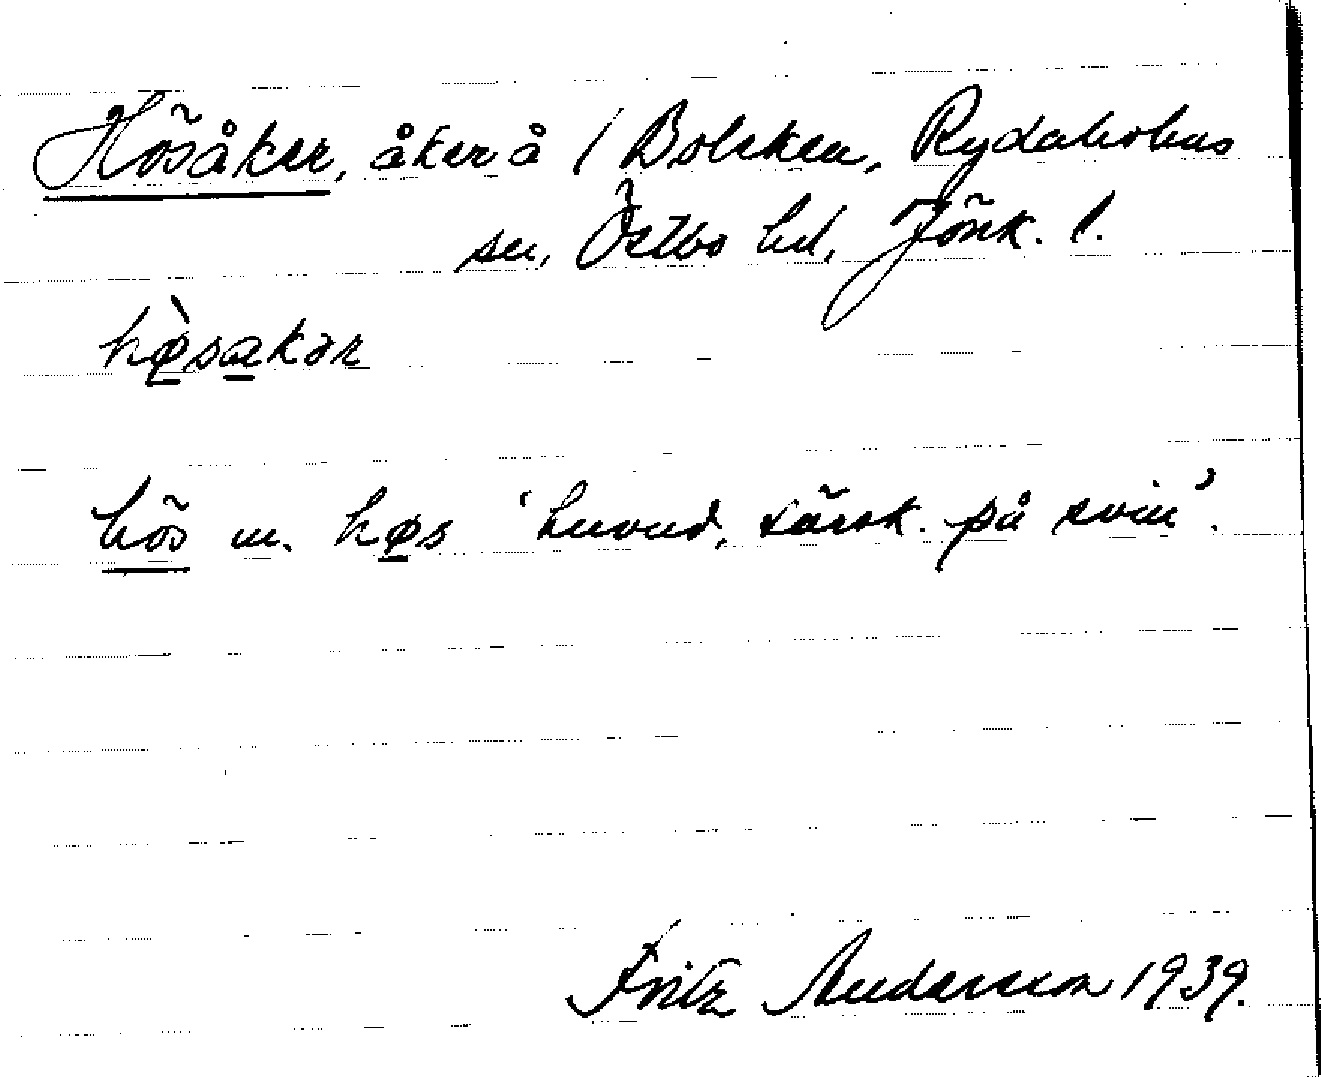 Hösåker, åker å / Bolcken, Rydaholms
sn, Östbo hd, Jönk. l.
hø̀sakər
hös m. høs 'huvud, särsk. på svin'.
Fritz Andersson 1939.